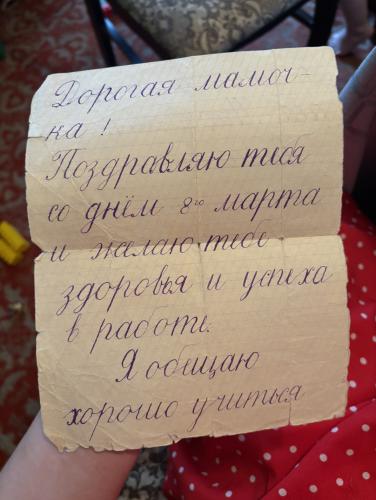 Дорогая мамоч-
ка !
Поздравляю тебя
со днём 8го марта
и желаю тебе
здоровья и успеха
в работе.
Я обещаю
хорошо учиться